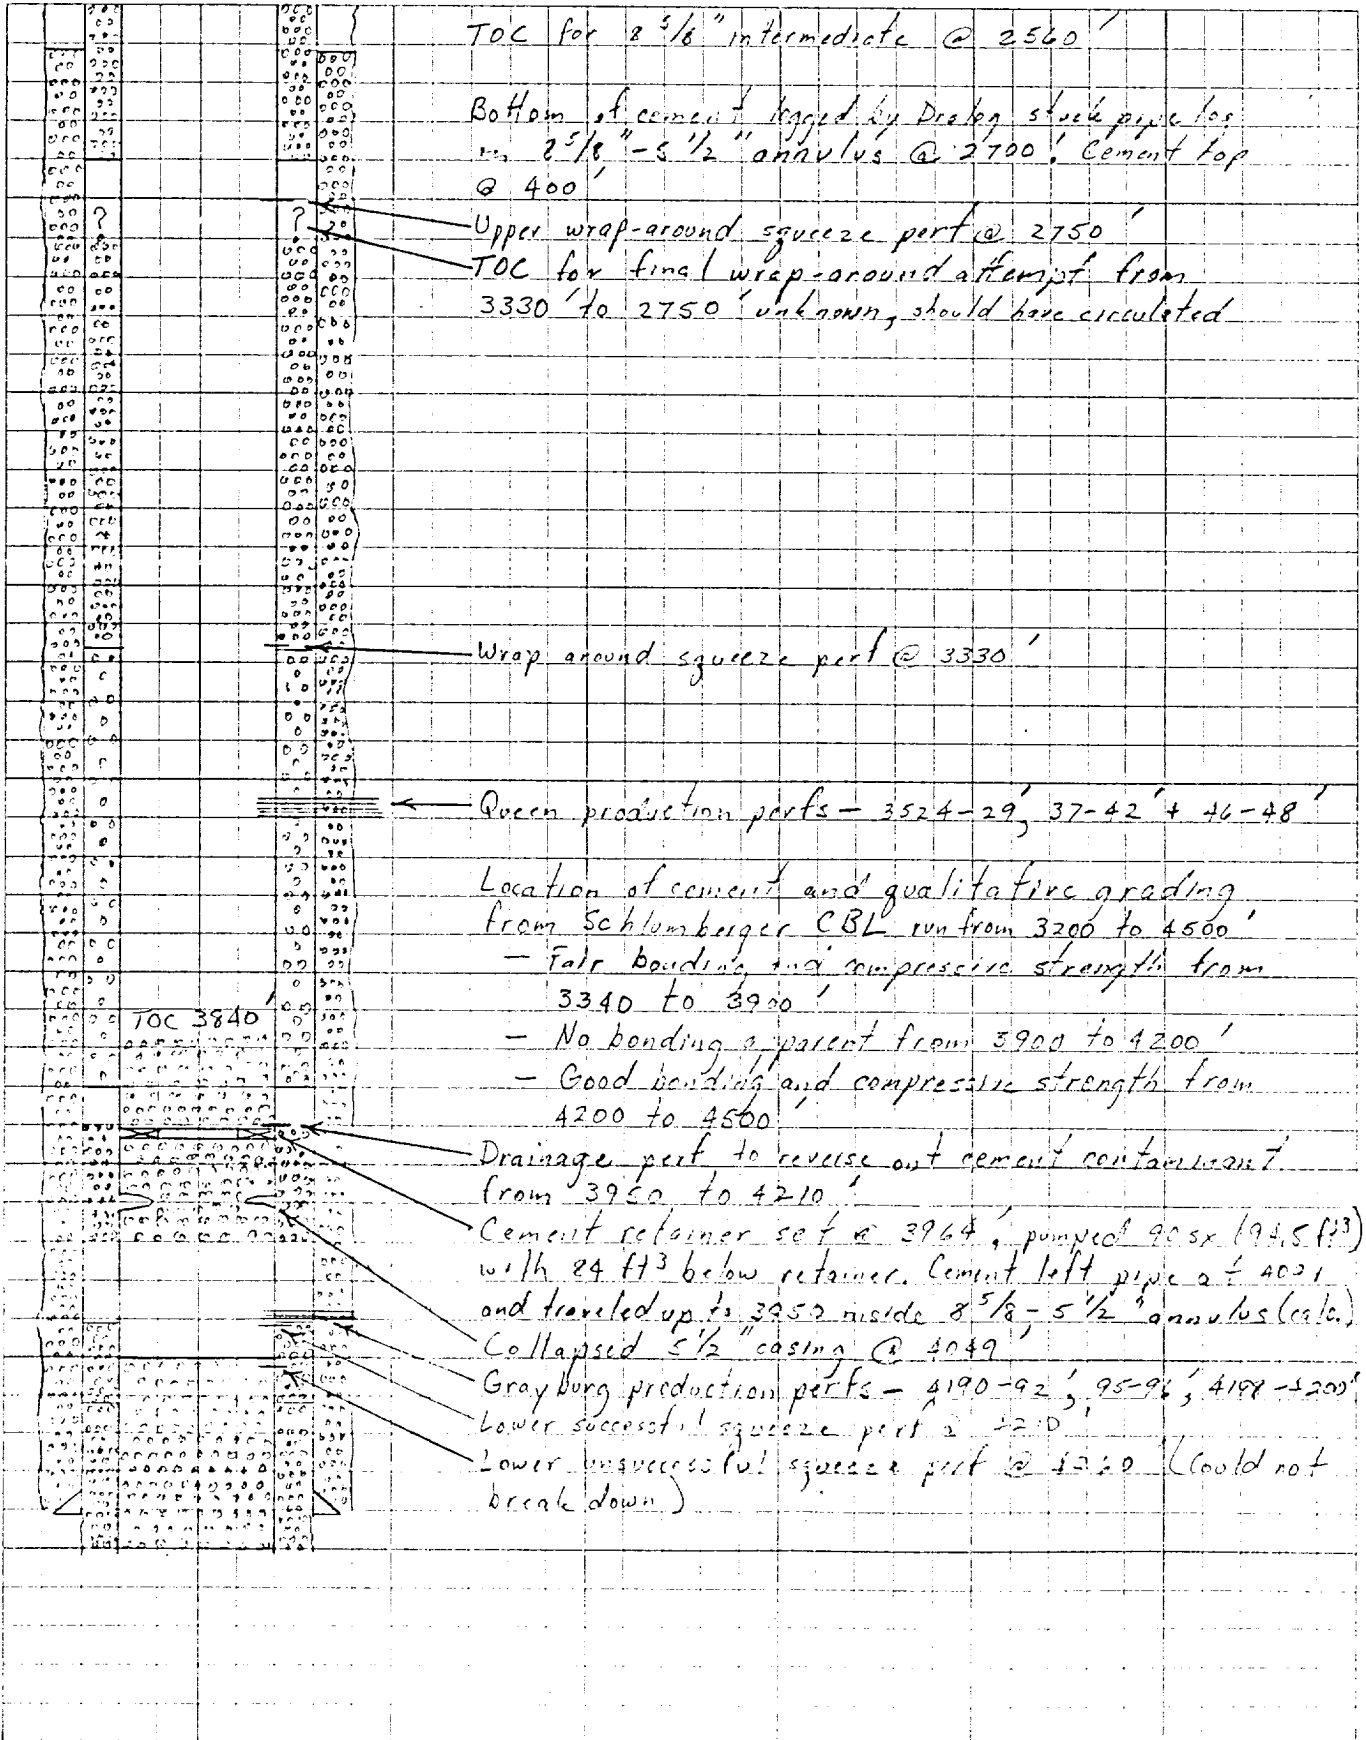 TOC for 8 5/8" intermediate @ 2560'
Bottom of cement logged by Dialog stuck pipe log
in 8 5/8" - 5 1/2" annulus @ 2700'. Cement top
@ 400'
? ?
Upper wrap-around squeeze perf @ 2750'
TOC for final wrap-around attempt from
3330' to 2750' unknown, should have circulated
Wrap around squeeze perf @ 3330'
Queen production perfs - 3524-29', 37-42' + 46-48'
Location of cement and qualitative grading
from Schlumberger CBL run from 3200 to 4500'
- Fair bonding and compressive strength from
3340 to 3900'
TOC 3840'
- No bonding apparent from 3900 to 4200'
- Good bonding and compressive strength from
4200 to 4500'
Drainage perf to reverse out cement contaminant
from 3950 to 4210'
Cement retainer set @ 3964', pumped 90 sx (94.5 ft³)
with 84 ft³ below retainer. Cement left pipe at
and traveled up to 3950 inside 8 5/8 - 5 1/2" annulus (calc.)
Collapsed 5 1/2" casing @ 4049'
Grayburg production perfs - 4190-92', 95-96', 4198-4200'
Lower successful squeeze perf @ 4210'
Lower unsuccessful squeeze perf @ (Could not
break down)